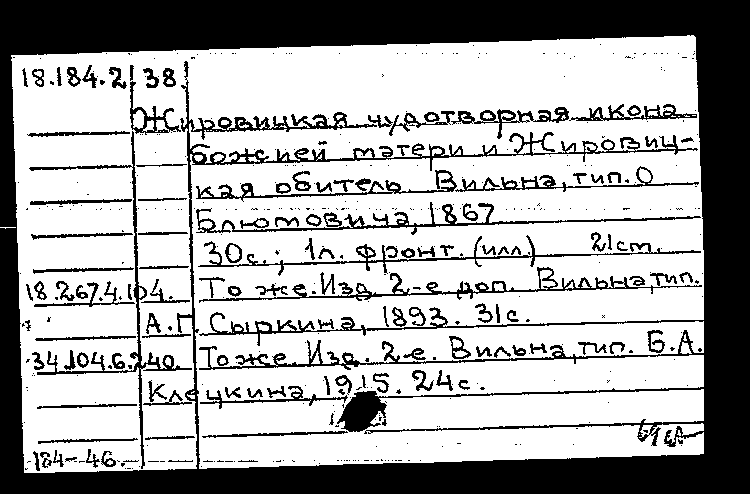 18.184.2.38.
Жировицкая чудотворная икона
божией матери и Жировиц-
кая обитель. Вильна, тип. О
Блюмовича, 1867
30с.; 1л. фронт. (илл.) 21cm.
18.267.4.104. То же. Изд. 2-е доп. Вильна, тип.
А.Г. Сыркина, 1893. 31с.
34.104.6.240. То же. Изд. 2-е. Вильна, тип. Б.А.
Клецкина, 1915. 24с.
184-46.